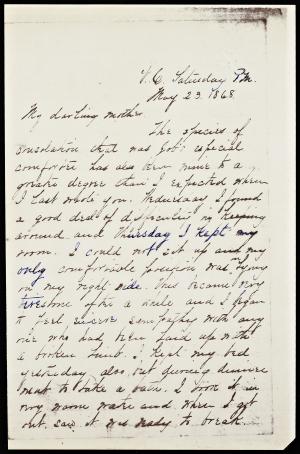 V. C. Saturday P.M.
May 23. 1868.
My darling mother
The species of
consolation that was Job's especial
comforter has also been mine to a
greater degree than I expected when
I last wrote you. Wednesday I found
a good deal of difficulty in keeping
around and Thursday I kept my
room. I could not sit up and my
only comfortable position was lying
on my right side. This became very
tiresome after a while and I began
to feel sincere sympathy with any
one who had been laid up with
a broken limb. I kept my bed
yesterday also, but during dinner
went to take a bath. I took it in
very warm water and when I got
out, saw it was ready to break.